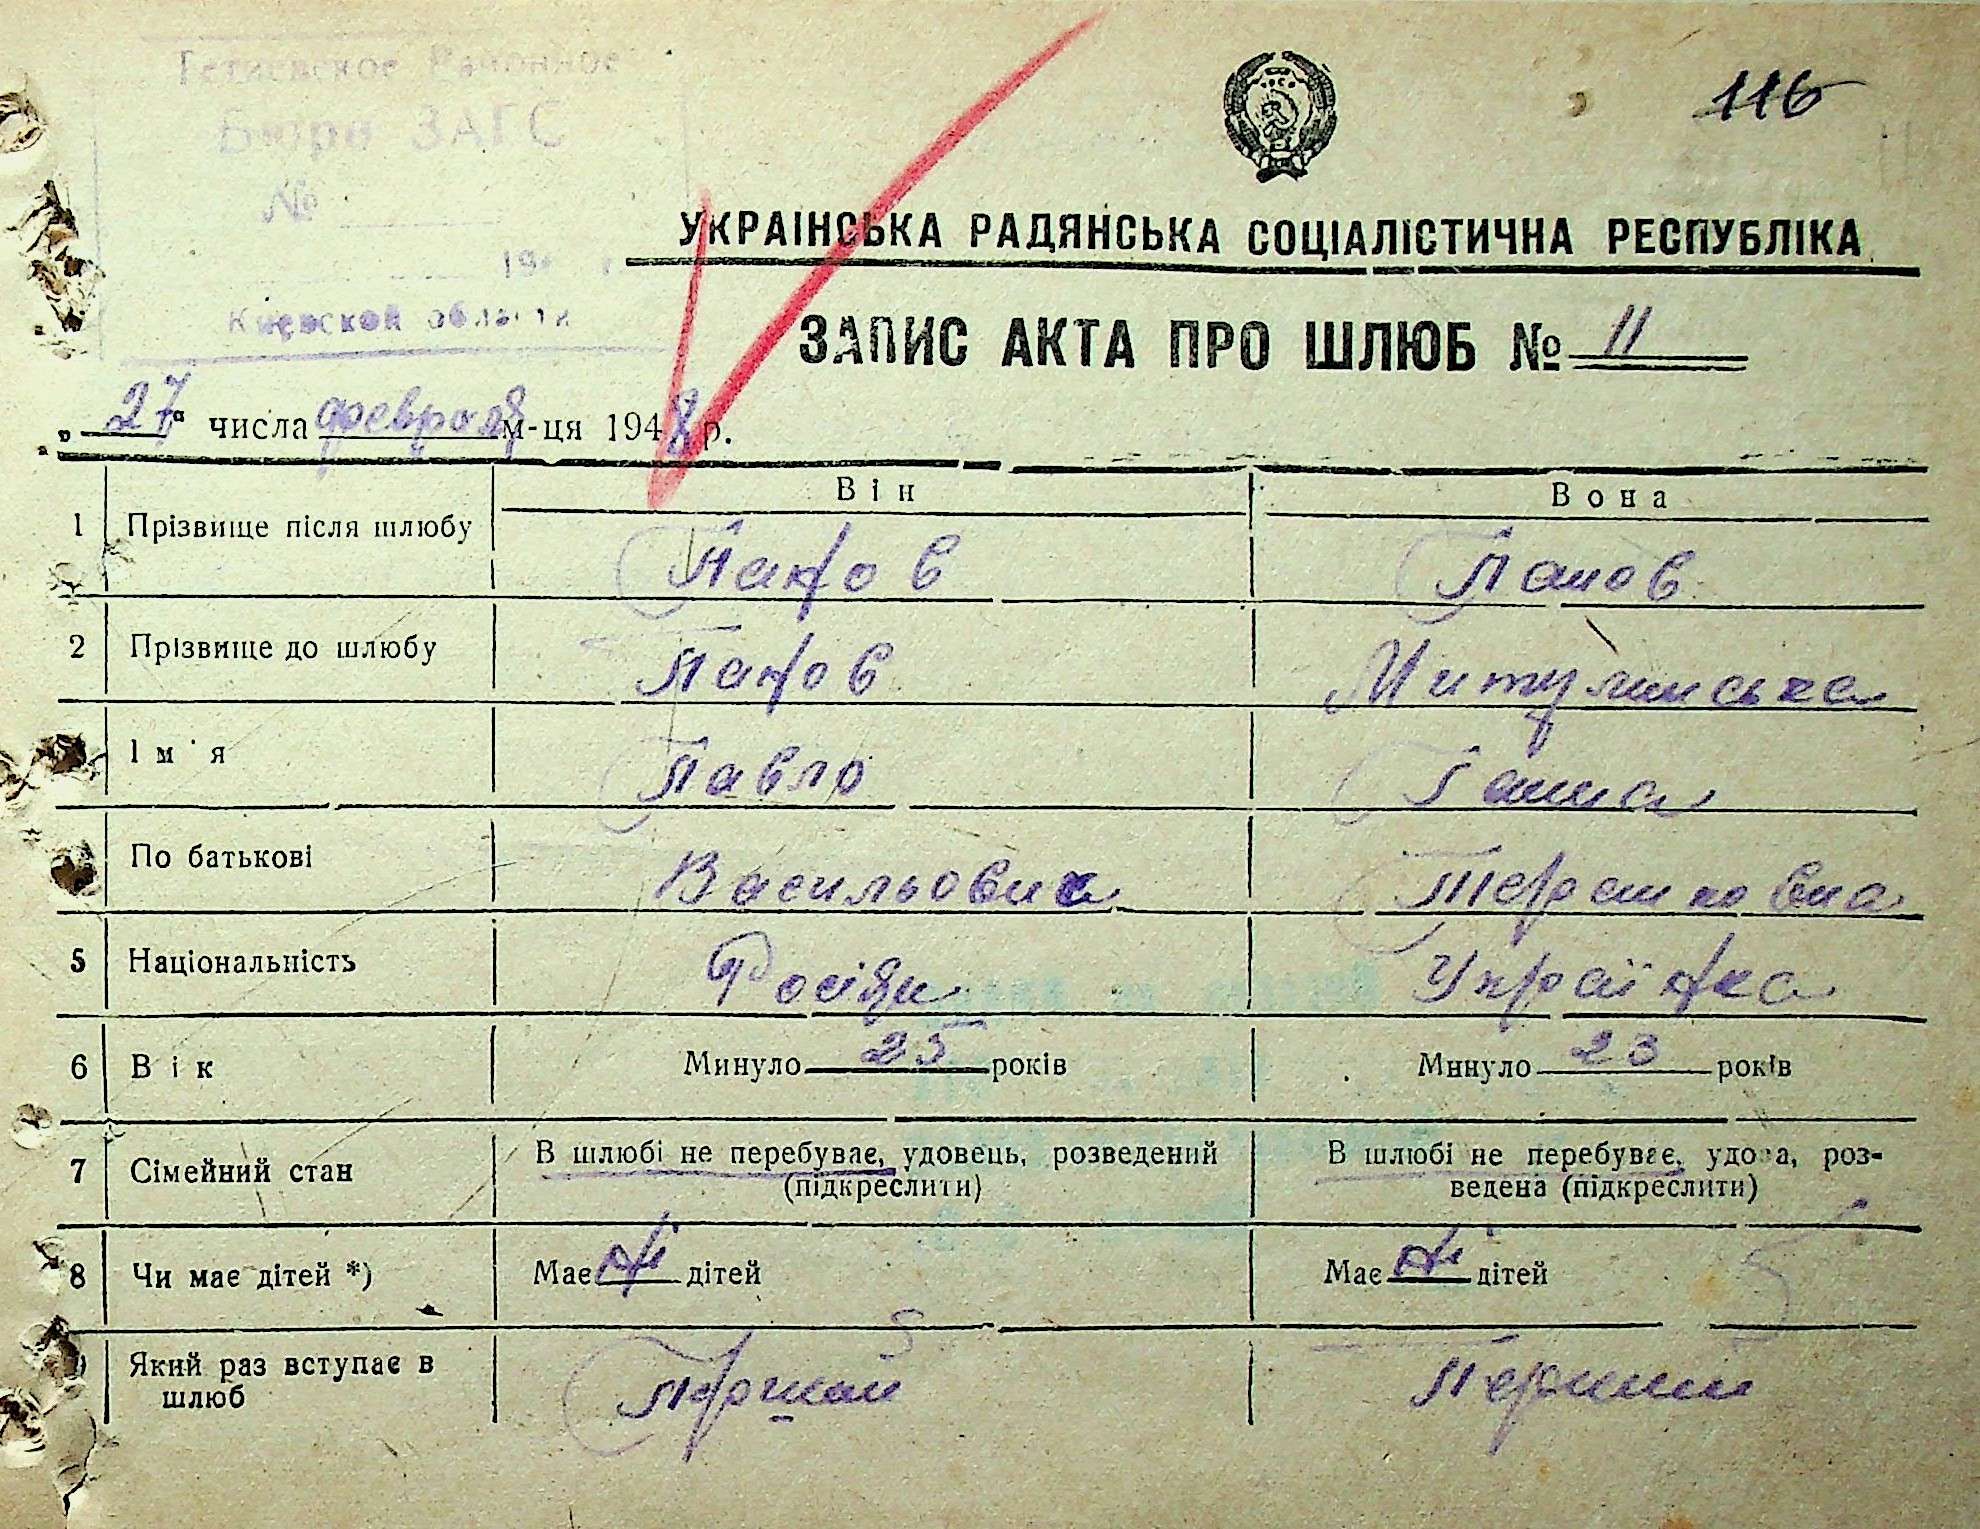 Тетиевское Районное
Бюро ЗАГС
№
19 г
Киевской области
116
УКРАІНСЬКА РАДЯНСЬКА СОЦІАЛІСТИЧНА РЕСПУБЛІКА
ЗАПИС АКТА ПРО ШЛЮБ № 11
„27“ числа февраля м-ця 1948 р.
Він Вона
1 Прізвище після шлюбу Панов Панов
2 Прізвище до шлюбу Панов Митулинська
Ім'я Павло Ганна
По батькові Васильович
5 Національність Росіян Українка
6 Вік Минуло 25 років Минуло 23 років
7 Сімейний стан В шлюбі не перебуває, удовець, розведений (підкреслити) В шлюбі не перебуває, удова, роз-
ведена (підкреслити)
8 Чи має дітей *) Має ні дітей Має ні дітей
9 Який раз вступає в шлюб Перший Перший